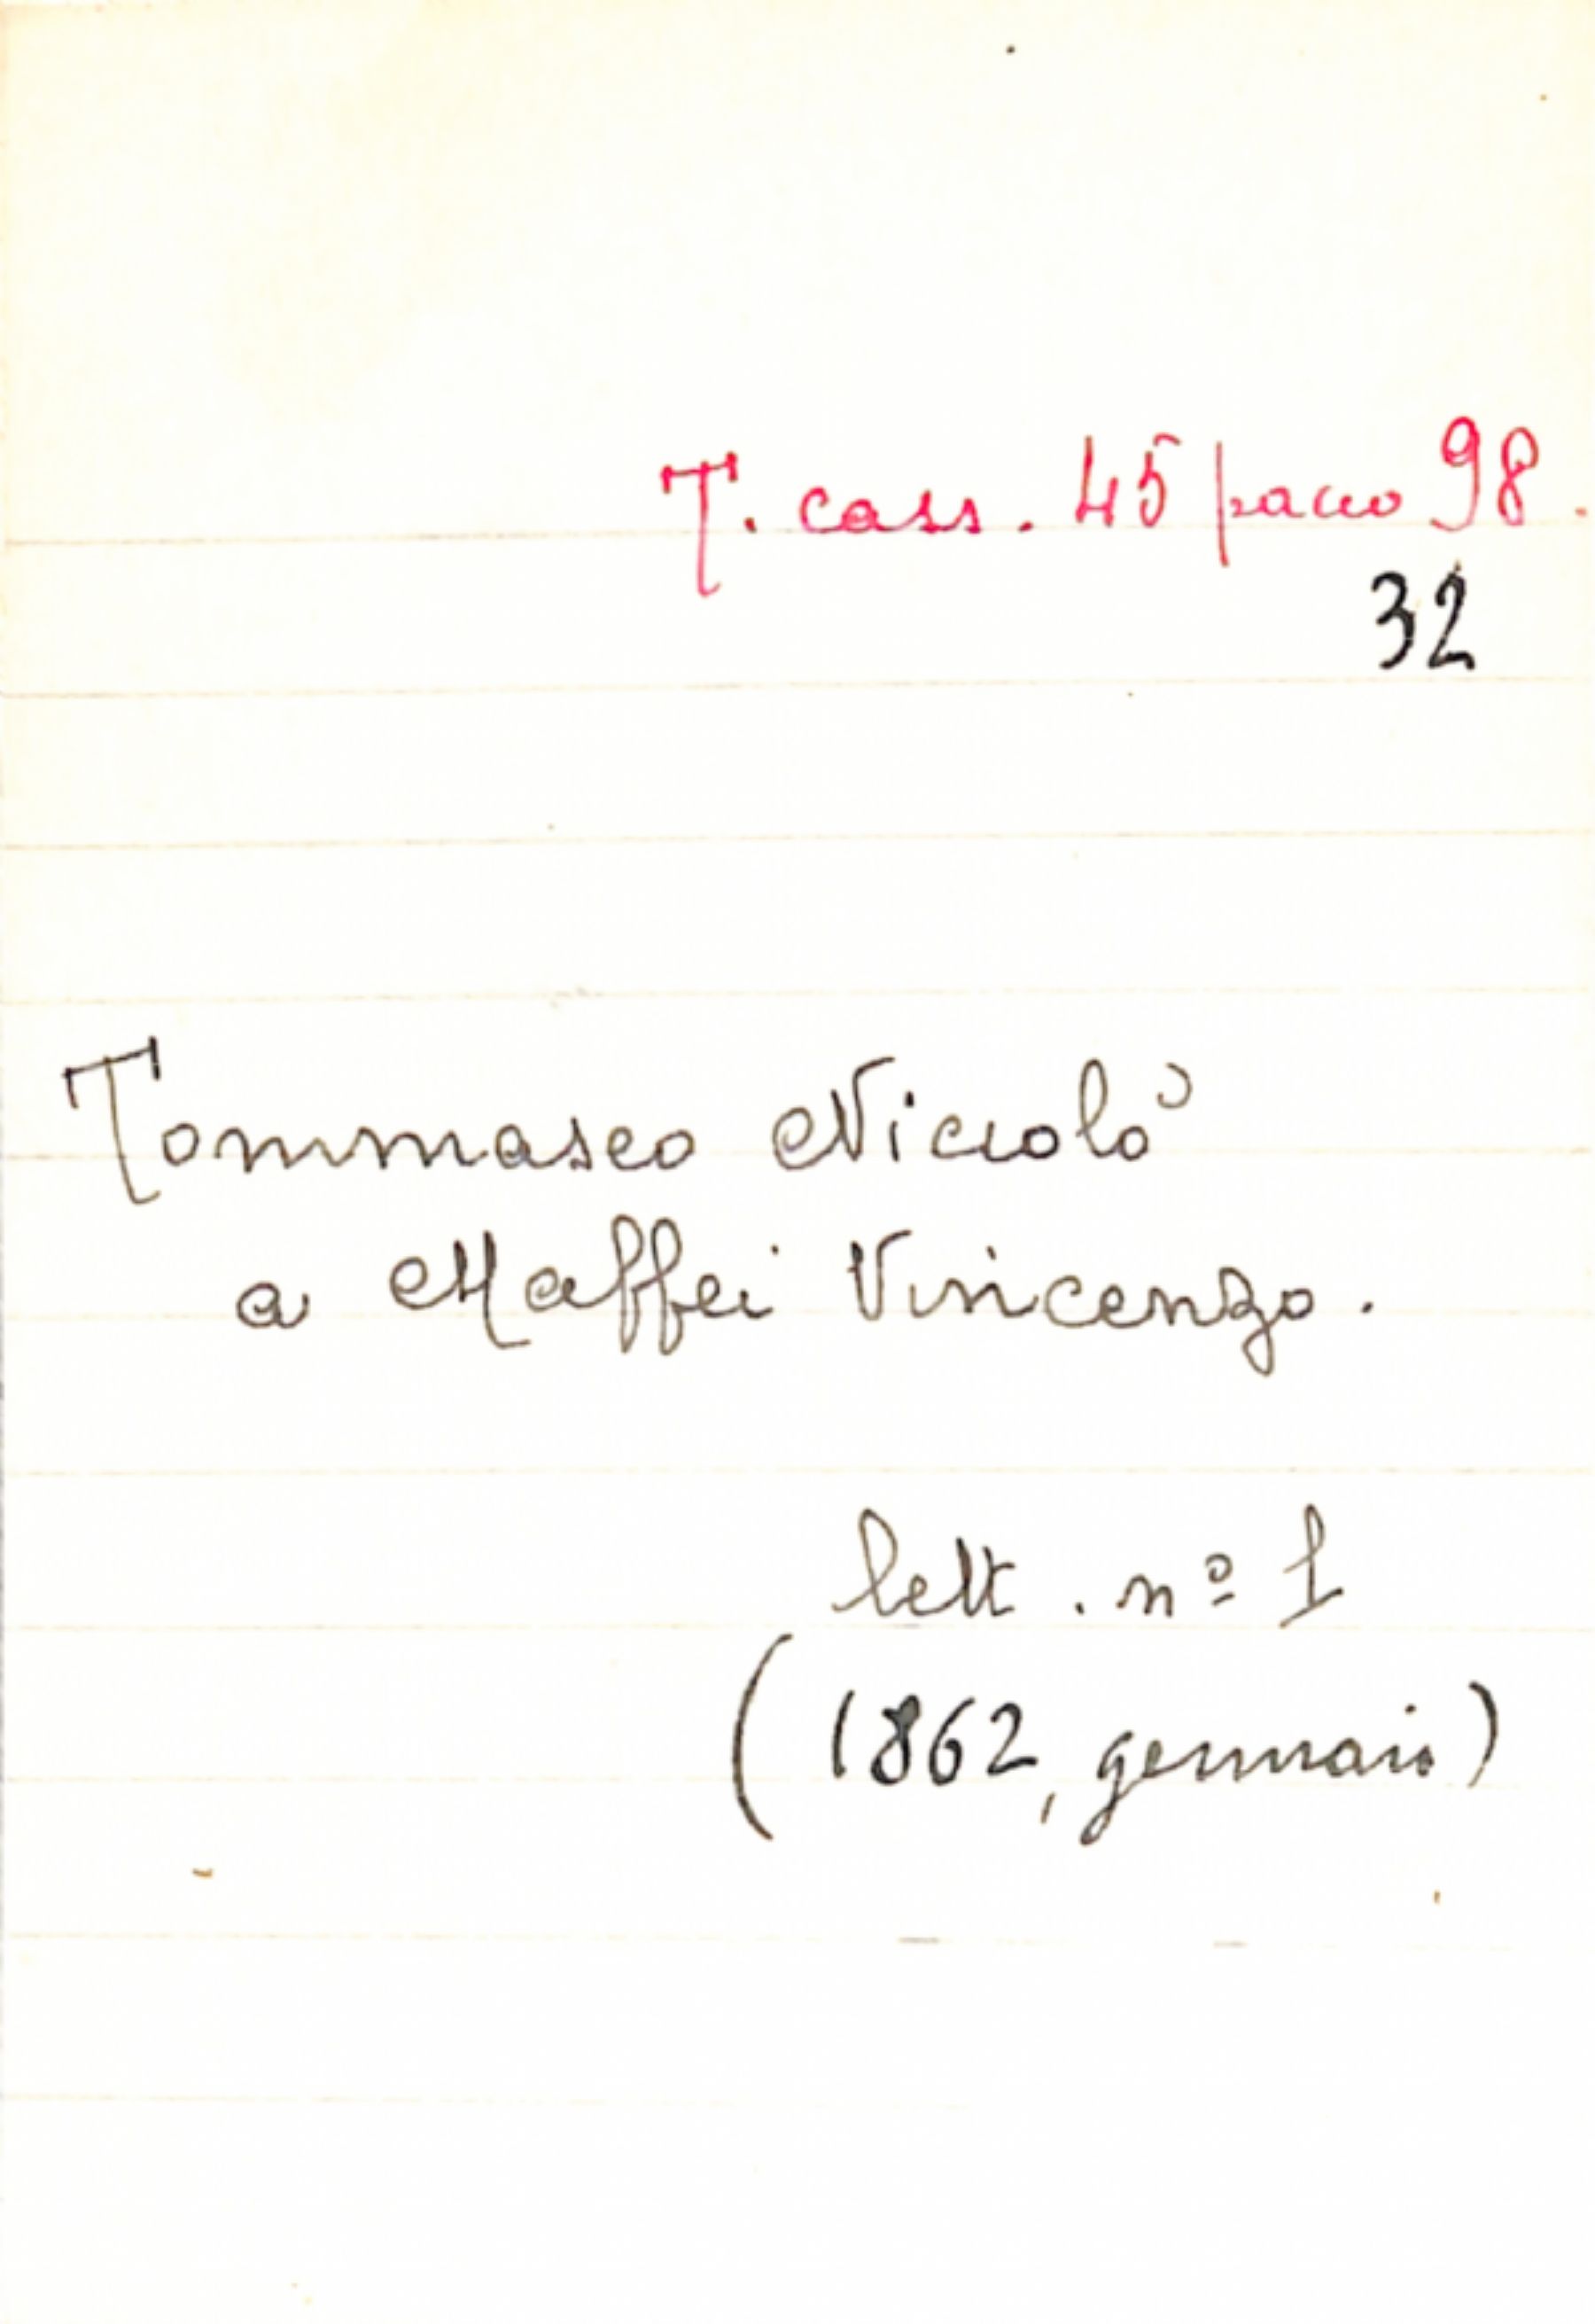 T. cass. 45 pacco 98.
32
Tommaseo Niccolò
a Maffei Vincenzo.
lett. nº 1
(1862, gennaio)